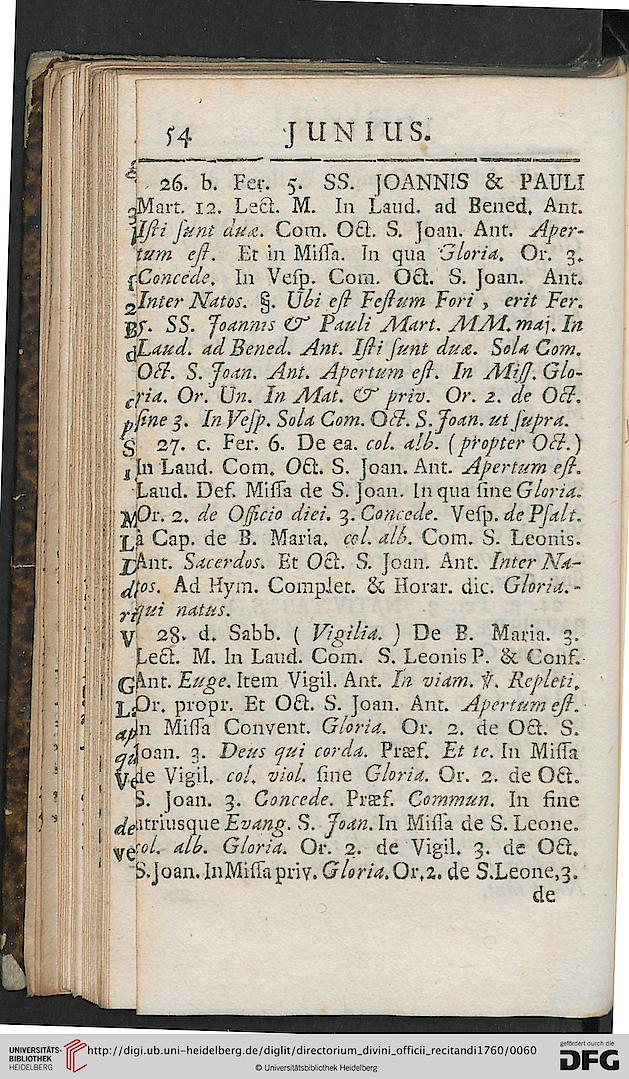 54 JUNIUS.
26. b. Fer. 5. SS. JOANNIS & PAULI
Mart. 12. Lect. M. In Laud. ad Bened. Ant.
Isti sunt duæ. Com. Oct. S. Joan. Ant. Aper-
tum est. Et in Missa. In qua Gloria. Or. 3.
Concede. In Vesp. Com. Oct. S. Joan. Ant.
Inter Natos. §. Ubi est Festum Fori, erit Fer.
5. SS. Joannis & Pauli Mart. MM. maj. In
Laud. ad Bened. Ant. Isti sunt duæ. Sola Com.
Oct. S. Joan. Ant. Apertum est. In Miss. Glo-
ria. Or. Un. In Mat. & priv. Or. 2. de Oct.
sine 3. In Vesp. Sola Com. Oct. S. Joan. ut supra.
27. c. Fer. 6. De ea. col. alb. (propter Oct.)
In Laud. Com. Oct. S. Joan. Ant. Apertum est.
Laud. Def. Missa de S. Joan. In qua sine Gloria.
Or. 2. de Officio diei. 3. Concede. Vesp. de Psalt.
à Cap. de B. Maria. col. alb. Com. S. Leonis.
Ant. Sacerdos. Et Oct. S. Joan. Ant. Inter Na-
tos. Ad Hym. Complet. & Horar. dic. Gloria.-
qui natus.
28. d. Sabb. ( Vigilia. ) De B. Maria. 3.
Lect. M. In Laud. Com. S. Leonis P. & Conf.
Ant. Euge. Item Vigil. Ant. In viam. ℣. Repleti.
Or. propr. Et Oct. S. Joan. Ant. Apertum est.
In Missa Convent. Gloria. Or. 2. de Oct. S.
Joan. 3. Deus qui corda. Præf. Et te. In Missa
de Vigil. col. viol. sine Gloria. Or. 2. de Oct.
S. Joan. 3. Concede. Præf. Commun. In fine
utriusque Evang. S. Joan. In Missa de S. Leone.
col. alb. Gloria. Or. 2. de Vigil. 3. de Oct.
S. Joan. In Missa priv. Gloria. Or. 2. de S. Leone, 3.
de
UNIVERSITÄTS-
BIBLIOTHEK
HEIDELBERG
http://digi.ub.uni-heidelberg.de/diglit/directorium_divini_officii_recitandi1760/0060
© Universitätsbibliothek Heidelberg
gefördert durch die
DFG